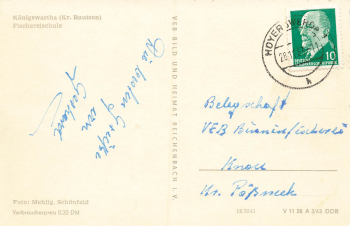 Königswartha (Kr. Bautzen)
Fischereischule
Die besten Grüße
von
VEB BILD UND HEIMAT REICHENBACH i. V.
HOYERSWERDA
10
Belegschaft
VEB Binnenfischerei
Knau
Kr. Pößneck
Foto: Mehlig, Schönfeld
Verbraucherpreis 0,20 DM
V 11 28 A 3/63 DDR